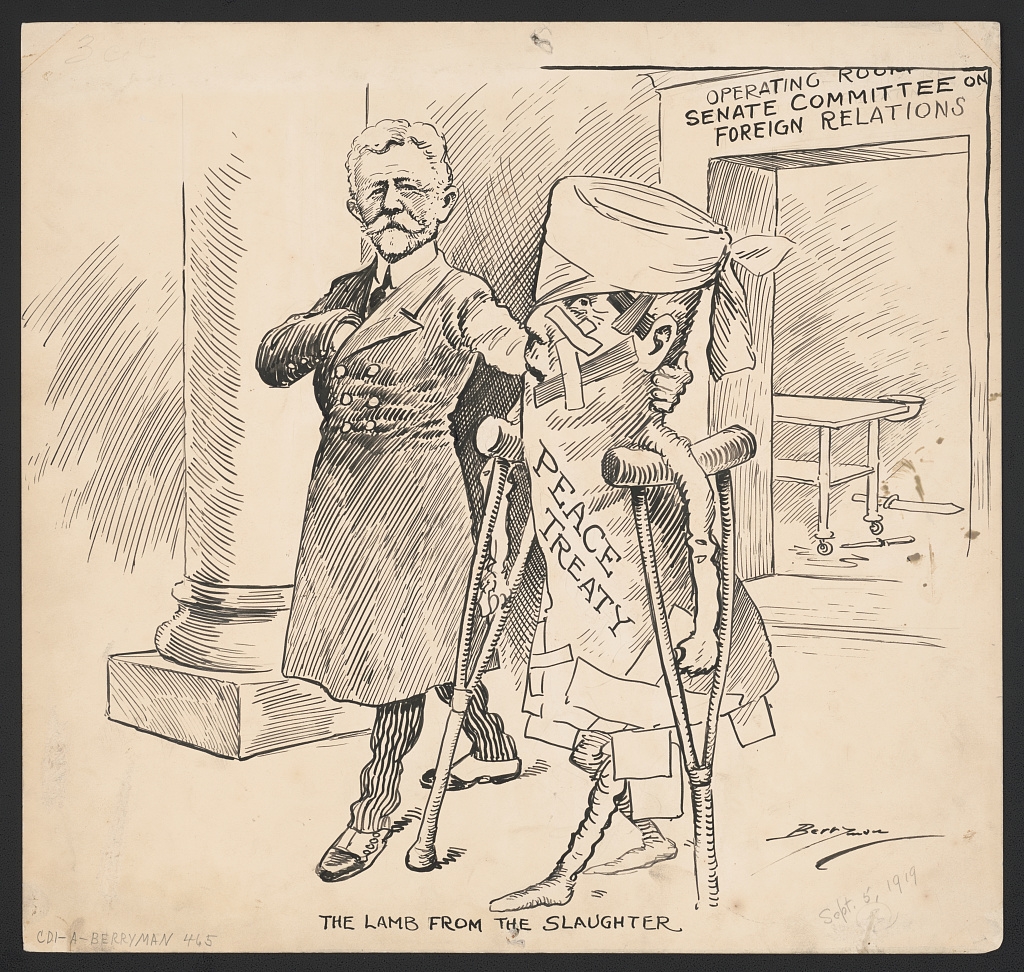 OPERATING ROOM
SENATE COMMITTEE ON
FOREIGN RELATIONS
PEACE
TREATY
Berryman
Sept. 5, 1919
THE LAMB FROM THE SLAUGHTER
CDI-A-BERRYMAN 465